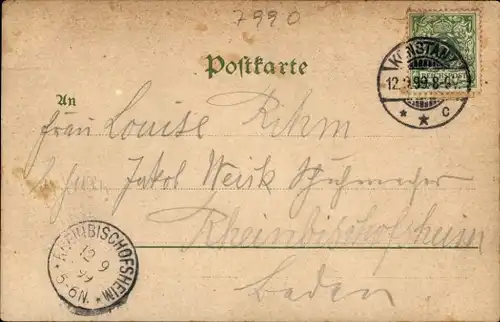 7990
Postkarte
KONSTANZ
12.9.99.8-9V.
* * c
An
Frau Louise Rihm
Jakob Weisk Schuhmacher
Rheinbischofsheim
Baden
RHEINBISCHOFSHEIM
12 9
99
5-6N.